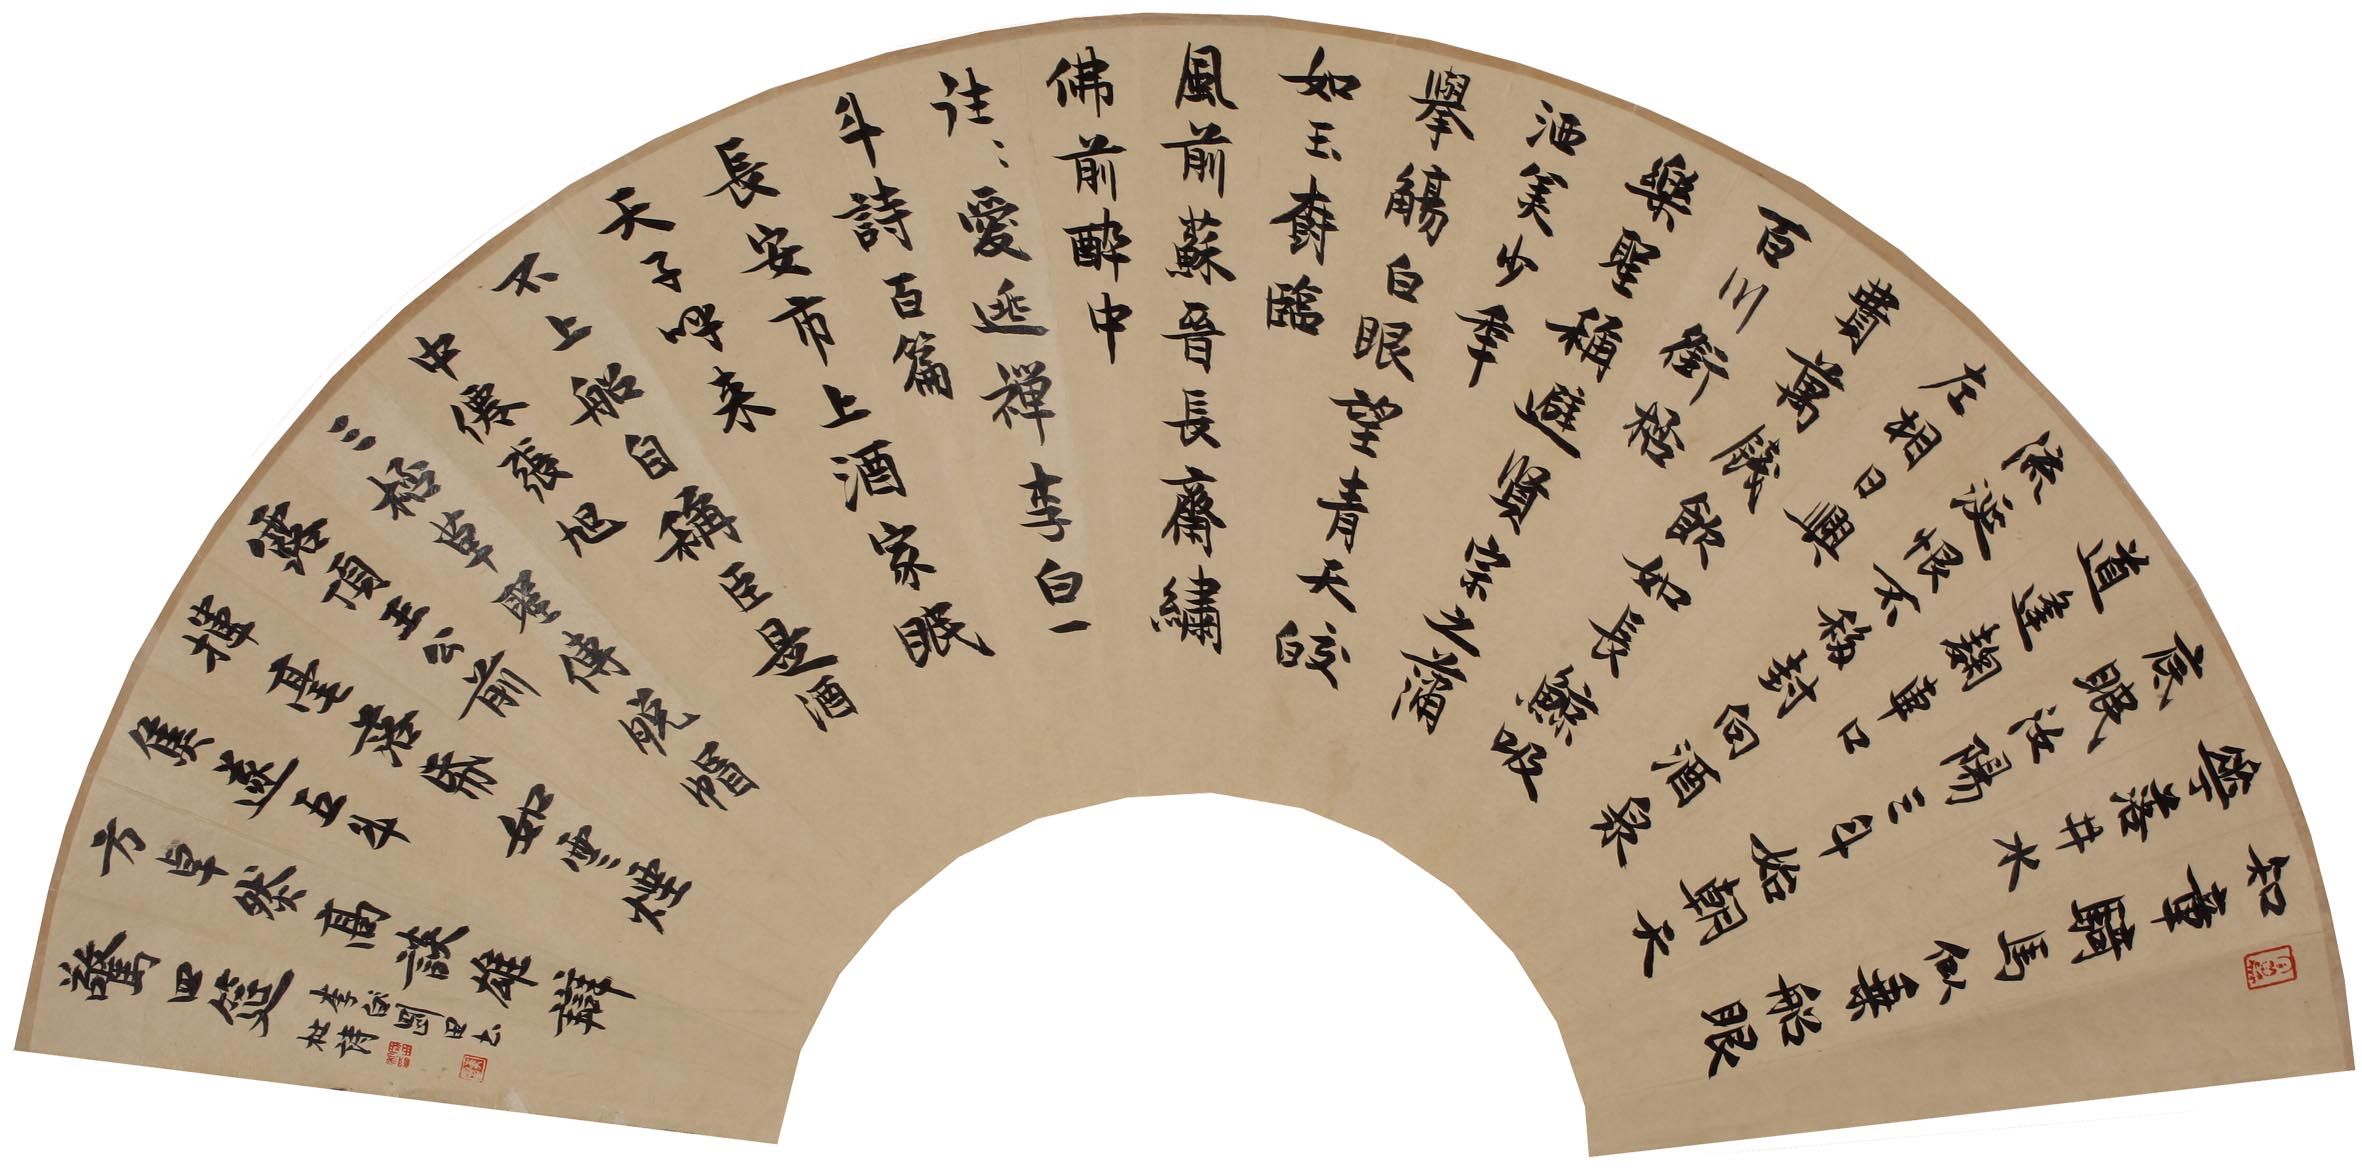 知章騎馬似乘船眼
花落井水
底眠汝陽三斗始朝天
道逢麴車口
流涎恨不移封向酒泉
左相日興
費萬錢飲如長鯨吸
百川銜桮
樂聖稱避賢宗之瀟
洒美少年
舉觴白眼望青天皎
如玉樹臨
風前蘇晉長齋繡
佛前醉中
往〻愛逃禪李白一
斗詩百篇
長安市上酒家眠
天子呼来
不上船自稱臣是酒
中僊張旭
三桮草聖傳脫帽
露頂王公前
揮毫落紙如雲煙
焦遂五斗
方卓然高談雄辯
驚四筵
杜詩